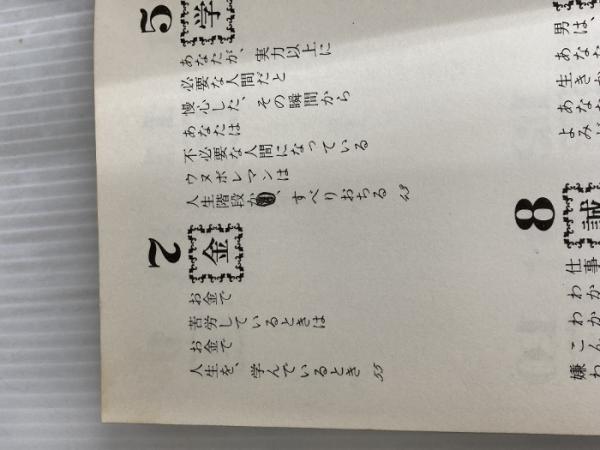 5
学
あなたが、実力以上に
必要な人間だと
慢心した、その瞬間から
あなたは
不必要な人間になっている
ウヌボレマンは
人生階段から、すべりおちる 43
7
金
お金で
苦労しているときは
お金で
人生を、学んでいるとき 55
男は、
あなた
生きか
あなた
よみ
8
誠
仕事
わか
わか
こん
嫌
わ